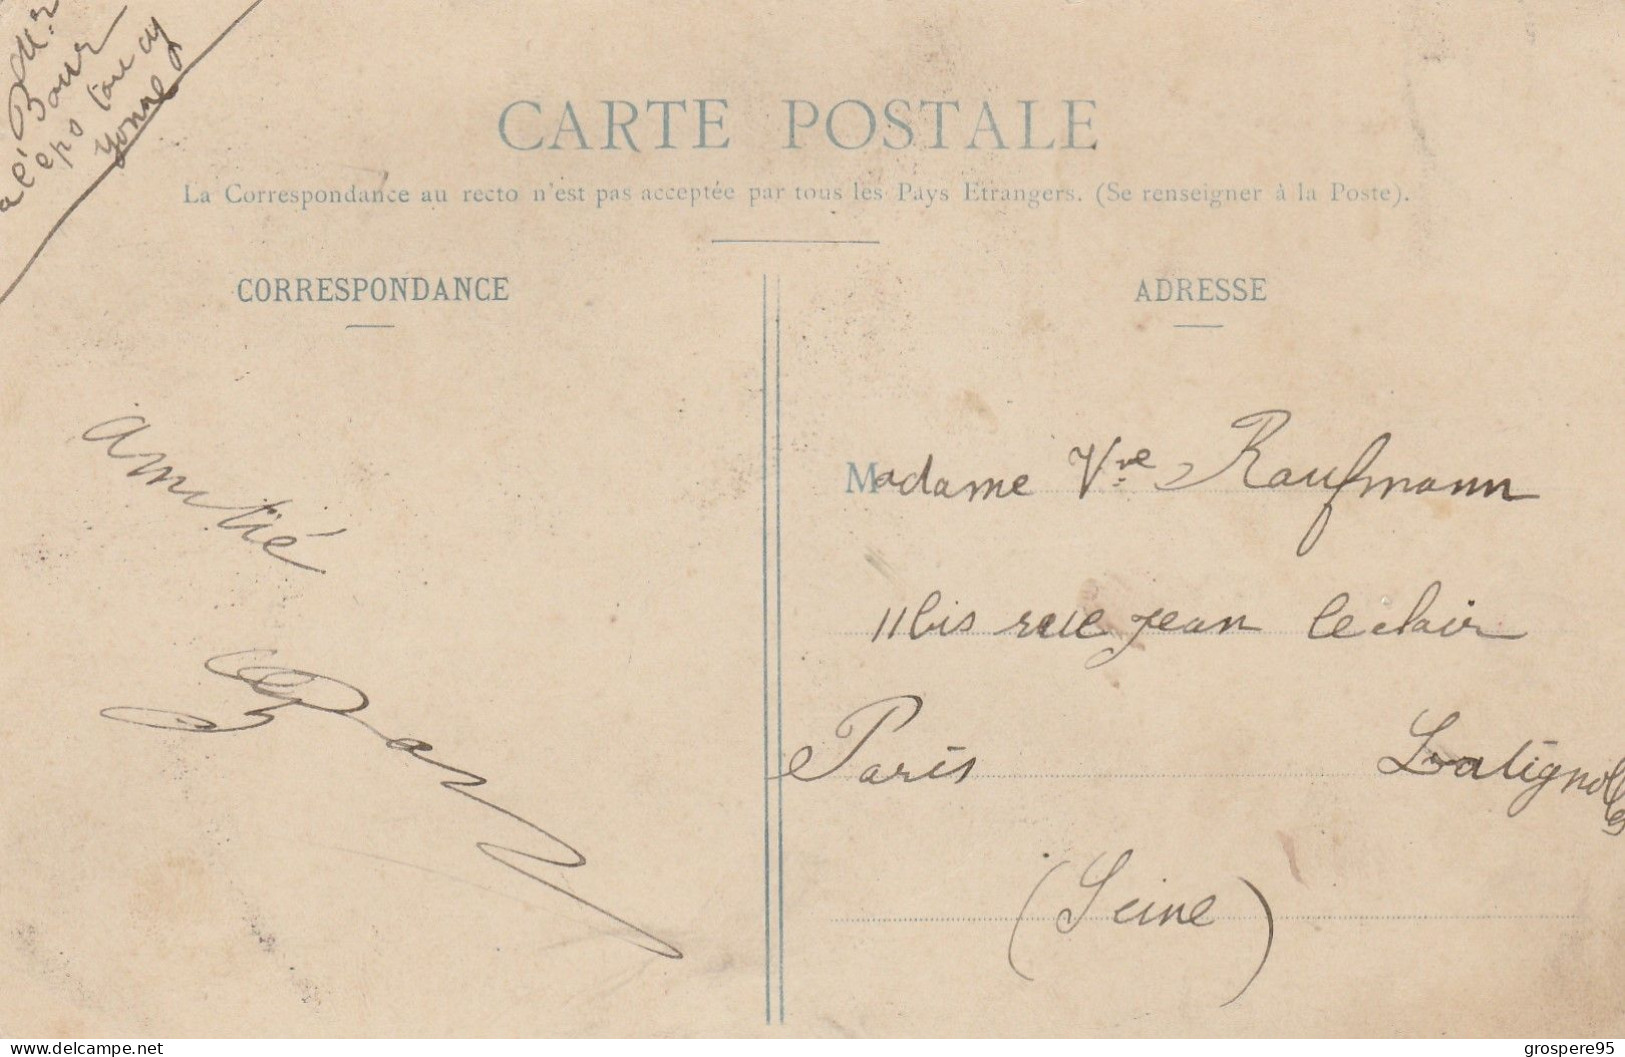 Mr Bour
à l'épo Toucy
Yonne
CARTE POSTALE
La Correspondance au recto n'est pas acceptée par tous les Pays Etrangers. (Se renseigner à la Poste).
CORRESPONDANCE
ADRESSE
amitié
Madame Vve Kaufmann
11bis rue Jean Leclair
Paris Batignolles
(Seine)
delcampe.net
grospere95